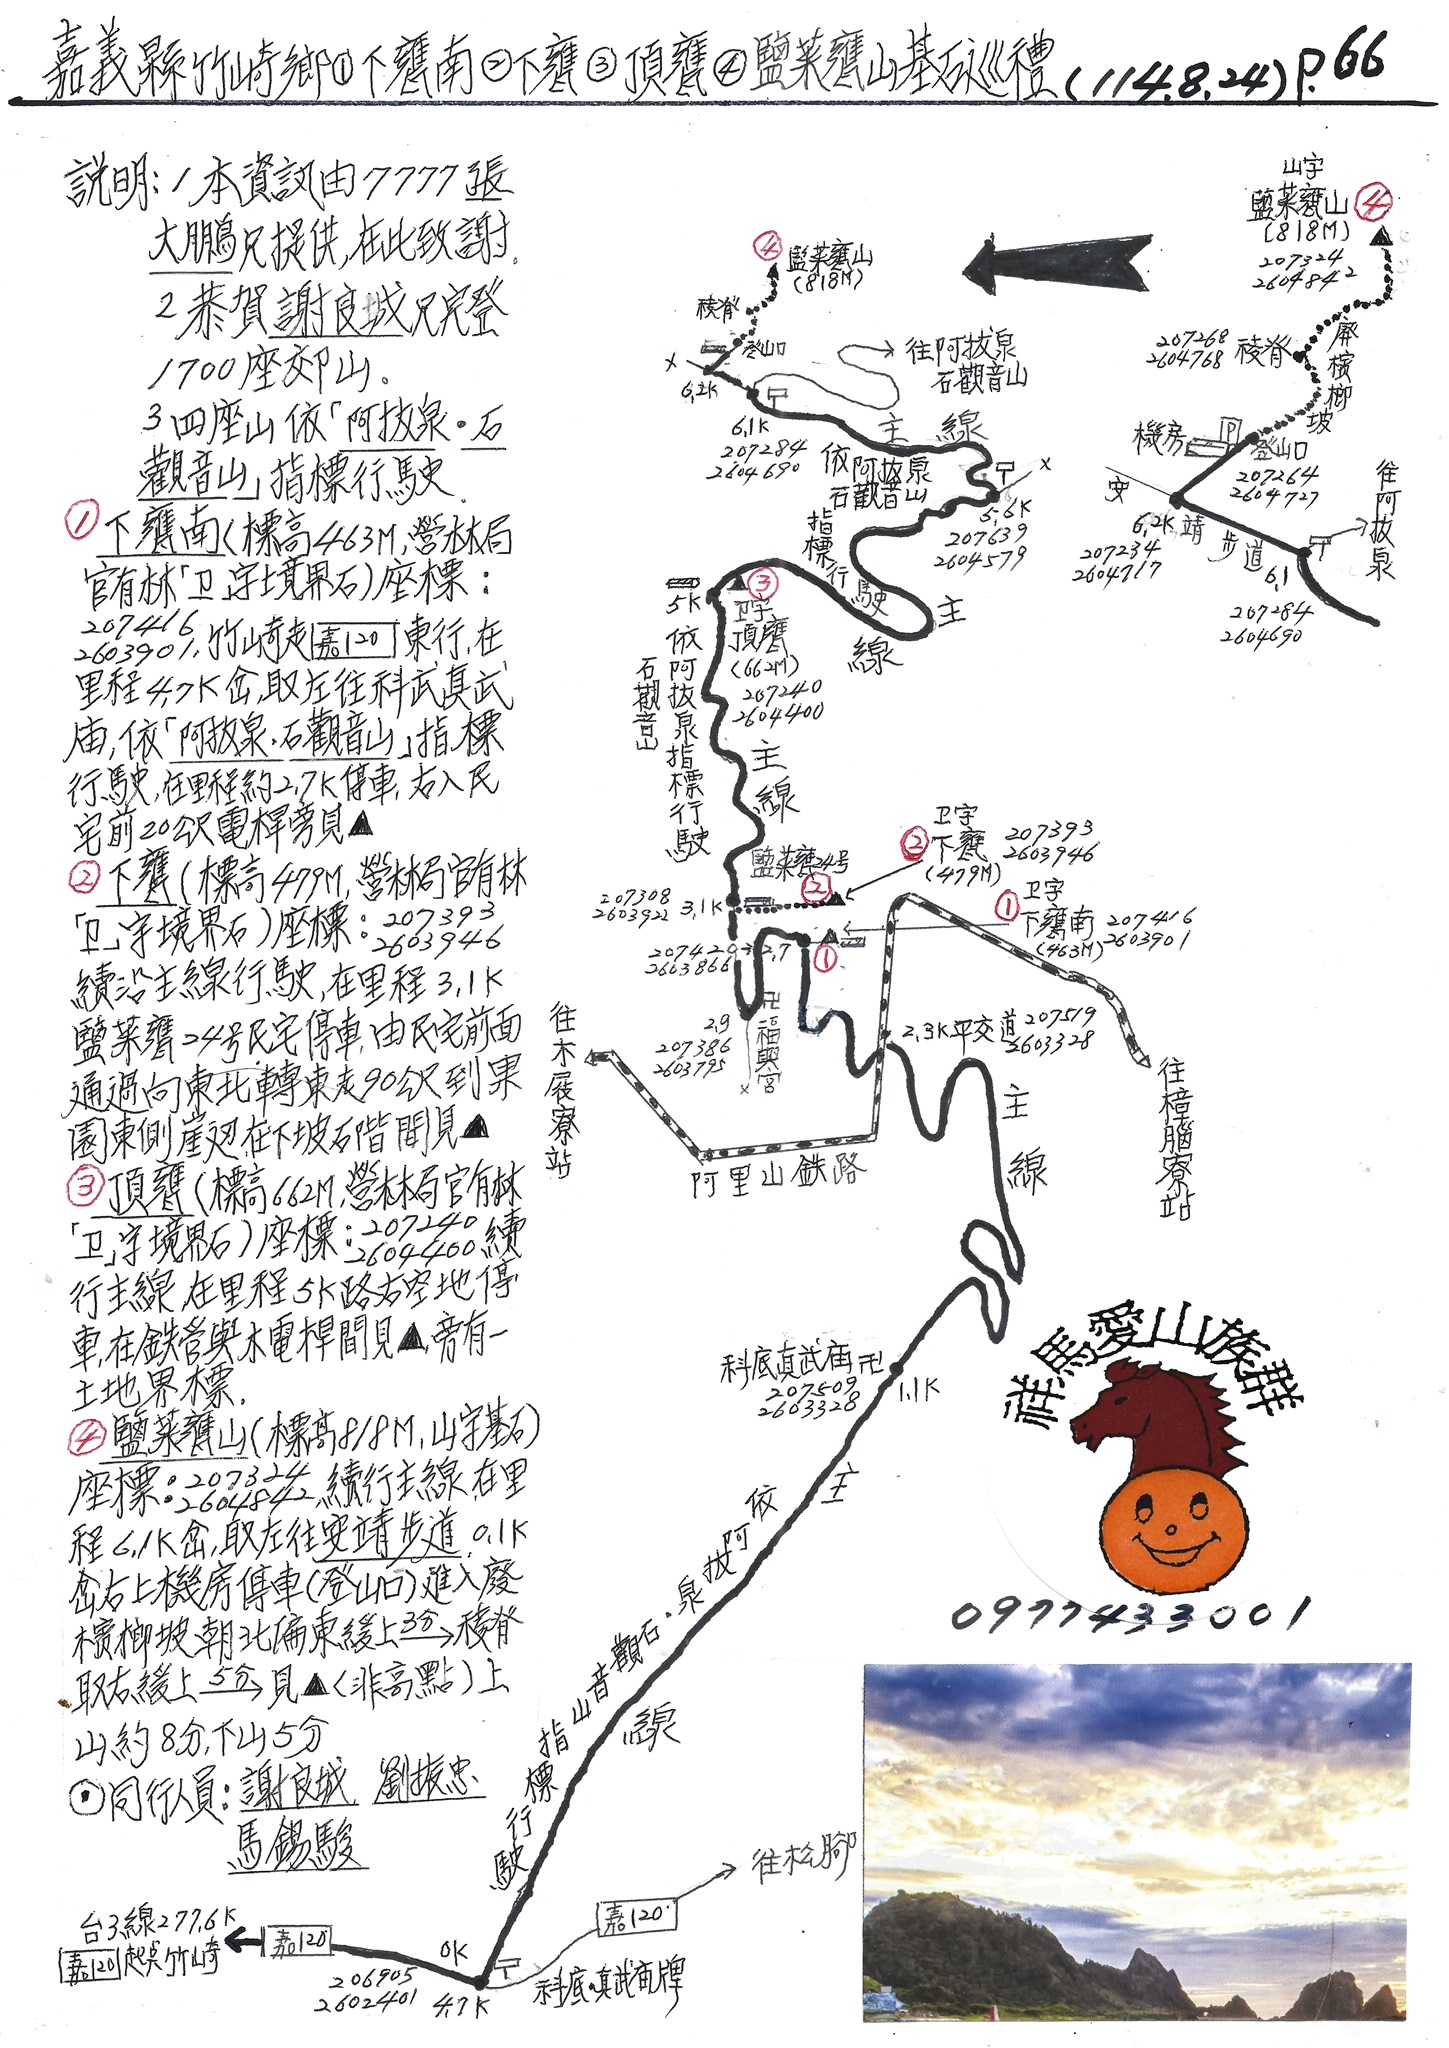 嘉義縣竹崎鄉①下甕南②下甕③頂甕④鹽菜甕山基石巡禮(114.8.24)P.66
說明:1本資訊由7777張
大鵬兄提供,在此致謝.
2恭賀謝良城兄完登
1700座郊山。
3四座山依「阿拔泉·石
觀音山」指標行駛.
①下甕南(標高463M,營林局
官有林「卫」字境界石)座標:
207416
2603901,竹崎走嘉120東行,在
里程4.7K岔,取左往科武真武
庙,依「阿拔泉·石觀音山」指標
行駛,在里程約2.7K停車,右入民
宅前20公尺電桿旁見▲
②下甕(標高479M,營林局官有林
「卫」字境界石)座標:207393
2603946
續沿主線行駛,在里程3.1K
鹽菜甕24号民宅停車,由民宅前面
通過向東北轉東走90公尺到果
園東側崖边,在下坡石階間見▲
③頂甕(標高662M,營林局官有林
「卫」字境界石)座標:207240
2604400續
行主線,在里程5K路右空地停
車,在鉄管與木電桿間見▲,旁有一
土地界標.
④鹽菜甕山(標高818M,山字基石)
座標:207324
2604842,續行主線,在里
程6.1K岔,取左往安靖步道,0.1K
岔右上機房停車(登山口)進入廢
檳榔坡,朝北偏東緩上3分→稜脊
取右緩上5分→見▲(非高點)上
山約8分,下山5分
⊙同行人員:謝良城 劉振忠
馬錫駿
山字
鹽菜甕山④
(818M)
207324
2604842
207268
2604768
稜脊
廢檳榔坡
機房
P
登山口
207264
2604727
安靖步道
6.2K
207234
2604717
往阿拔泉
6.1
207284
2604690
④鹽菜甕山
(818M)
稜脊
登山口
x
6.2K
往阿拔泉
石觀音山
6.1K
207284
2604690
主線
依阿拔泉
石觀音山
指標行駛
x
5.6K
207639
2604579
主線
5K
③
卫字
頂甕
(662M)
207240
2604400
依阿拔泉指標行駛
石觀音山
主線
鹽菜甕24号
207308
2603922
3.1K
②
②
卫字
下甕
(479M)
207393
2603946
①
卫字
下甕南
(463M)
207416
2603901
207420
2603866
2.7
①
2.9
207386
2603795
卍福興宮
x
2.3K平交道207519
2603328
往木屐寮站
阿里山鉄路
往樟腦寮站
主線
科底真武庙卍
207509
2603328
1.1K
主線
依阿拔泉·石觀音山指標行駛
祥馬愛山族群
0977433001
往松腳
嘉120
科底·真武庙牌
0K
4.7K
206905
2602401
嘉120
台3線277.6K
嘉120起点竹崎